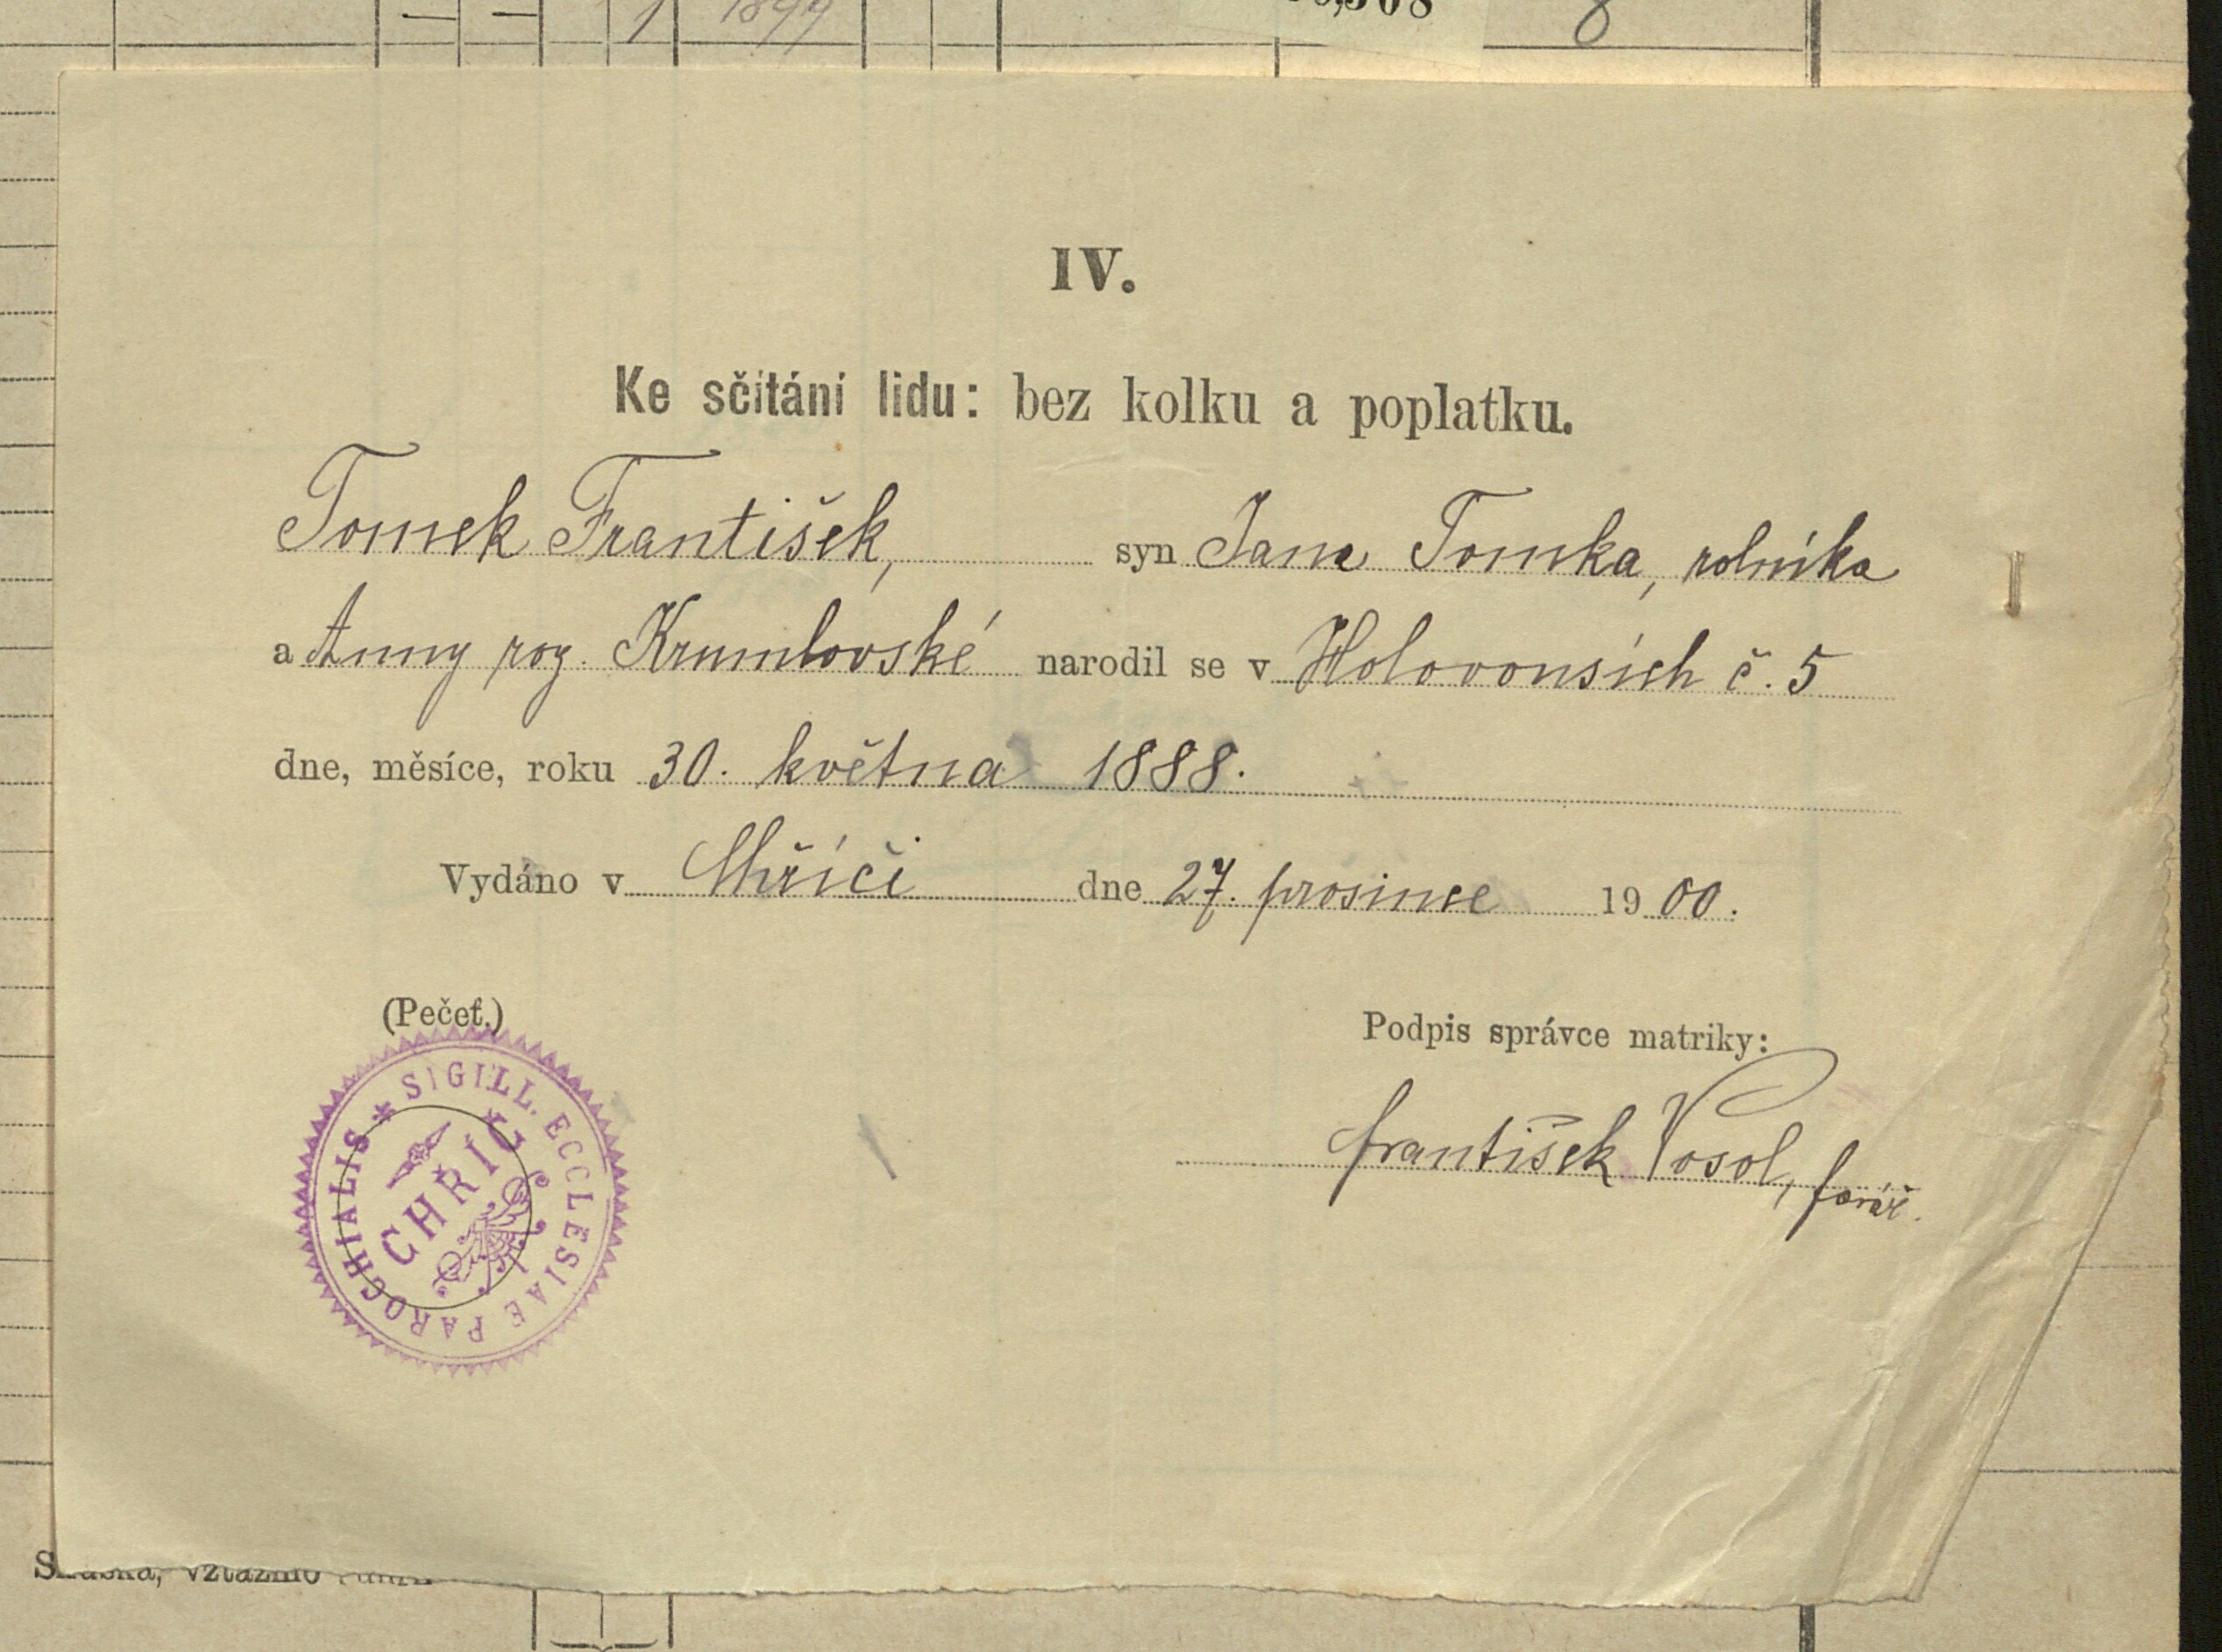 1 1899 8
IV.
Ke sčítání lidu: bez kolku a poplatku.
Tomek František, syn Jana Tomka, rolníka
a Anny roz. Krumlovské narodil se v Holovousích č. 5
dne, měsíce, roku 30. května 1888.
Vydáno v Chříči dne 27. prosince 1900.
(Pečeť.)
Podpis správce matriky:
František Vosol, farář.
* SIGILL. ECCLESIAE PAROCHIALIS
CHŘÍČ